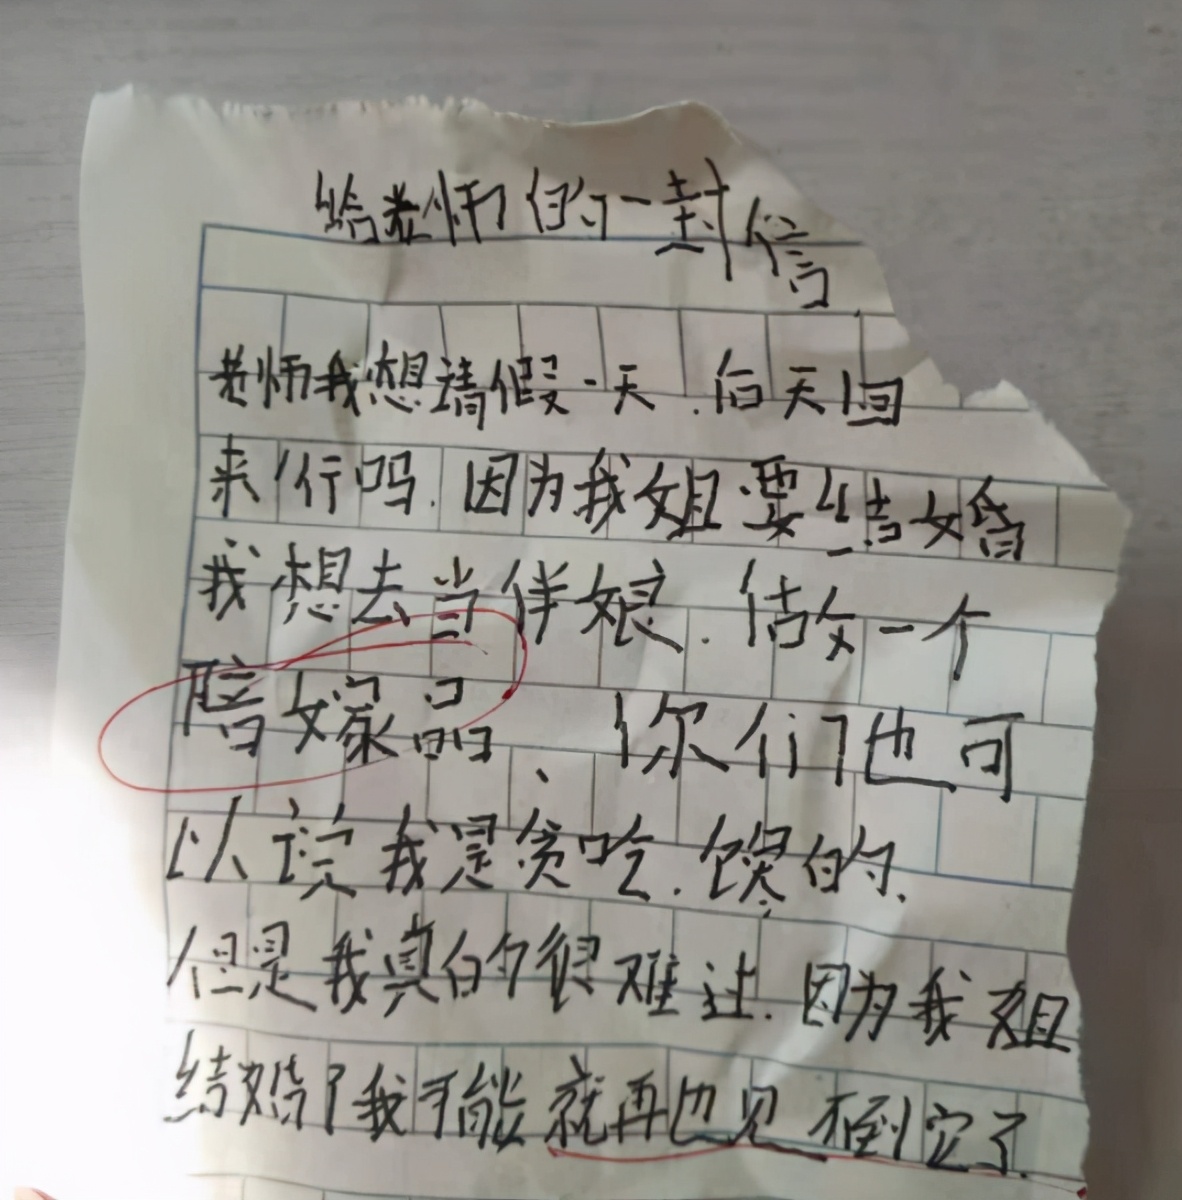 给老师的一封信
老师我想请假一天.后天回
来行吗.因为我姐要结婚
我想去当伴娘.估女一个
陪嫁品、你们也可
以说我是贪吃.馋的.
但是我真的很难过.因为我姐
结婚了我可能就再也见不到它了.